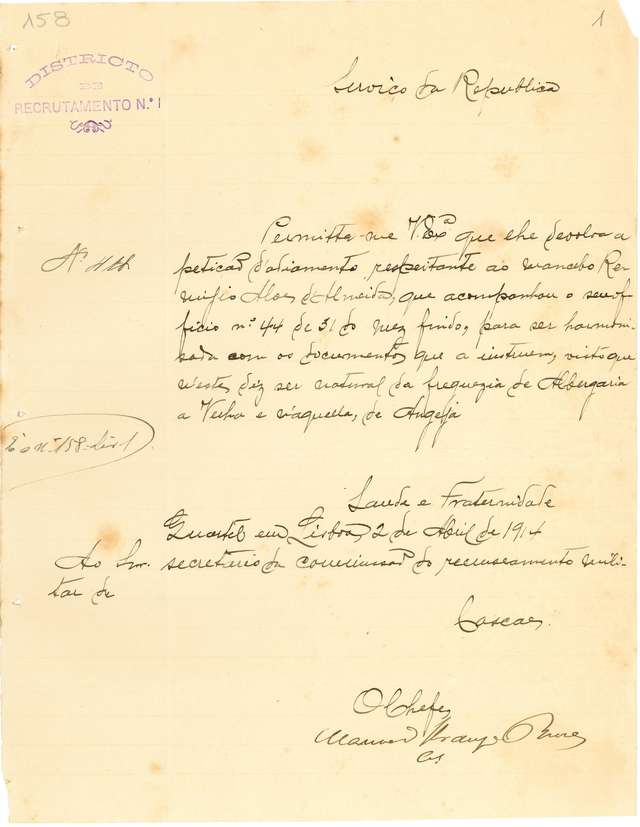 158
1
DISTRICTO
DE
RECRUTAMENTO N.º 1
Serviço da Republica
Permitta-me V. Exª que lhe devolva a
petição d'adiamento, respeitante ao mancebo Re-
migio Alves d'Almeida, que acompanhou o seu of-
ficio nº 44 de 31 do mez findo, para ser harmoni-
sada com os documentos que a instruem, visto que
nestes diz ser natural da freguezia de Albergaria
a Velha e n'aquella, de Angeja
Nº
É o nº 158
Saude e Fraternidade
Quartel em Lisboa, 2 de Abril de 1914
Ao Snr. secretario da commissão do recenseamento mili-
tar de
Cascaes.
O Chefe,
Manuel